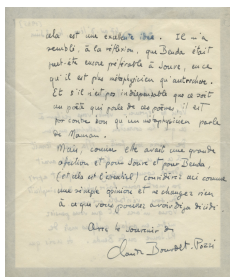 cela est une excellente idée. Il m'a
semblé, à la réflexion, que Benda était
peut-être encore préférable à Jouve, en ce
qu'il est plus métaphysicien qu'autre chose.
Et s'il n'est pas indispensable que ce soit
un poète qui parle de ces poèmes, il est
par contre bon qu'un métaphysicien parle
de
Mais, comme elle avait une grande
affection et pour Jouve et pour Benda
(et cela est l'essentiel) considérez ceci comme
une simple opinion et ne changez rien
à ce que vous pouvez avoir déjà décidé.
Avec le souvenir de
Claude